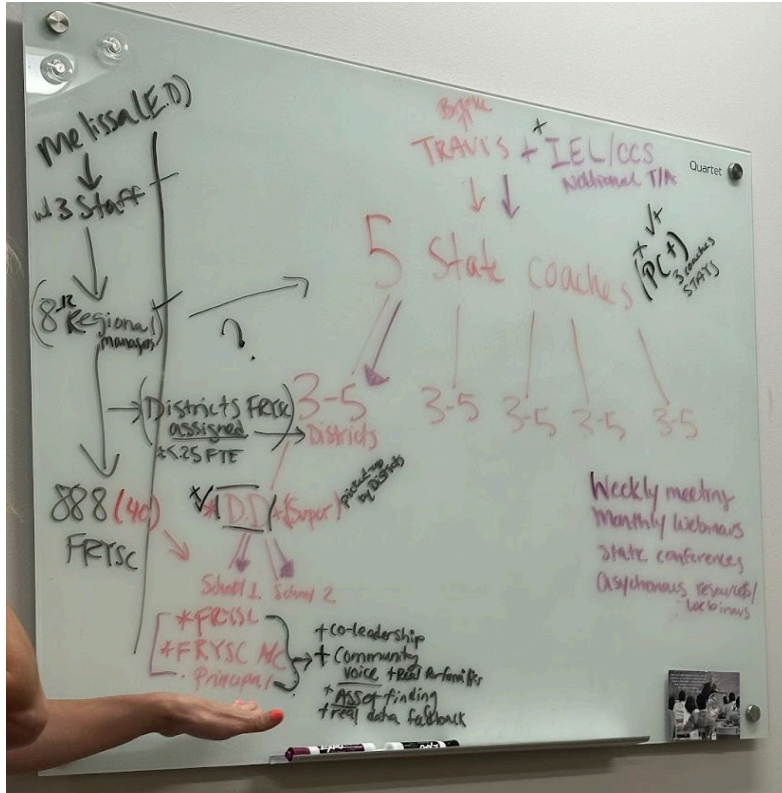 Melissa (E.D)
w/ 3 Staff
(8 Regional
managers)
?
(Districts FRYSC)
assigned
.25 FTE
888 (40)
FRYSC
TRAVIS + IEL/CCS
National T/A
Quartet
5 State coaches
(PC+)
3 coaches
STAYS
3-5 3-5 3-5 3-5 3-5
Districts
*(D.D) + (Super)
picked up
by Districts
School 1. School 2
*FRYSC
*FRYSC A/C
· Principal
+ Co-leadership
+ Community
voice + Real families
+ Asset finding
+ real data feedback
Weekly meeting
Monthly Webinars
State conferences
Asychronous resources/
Webinars